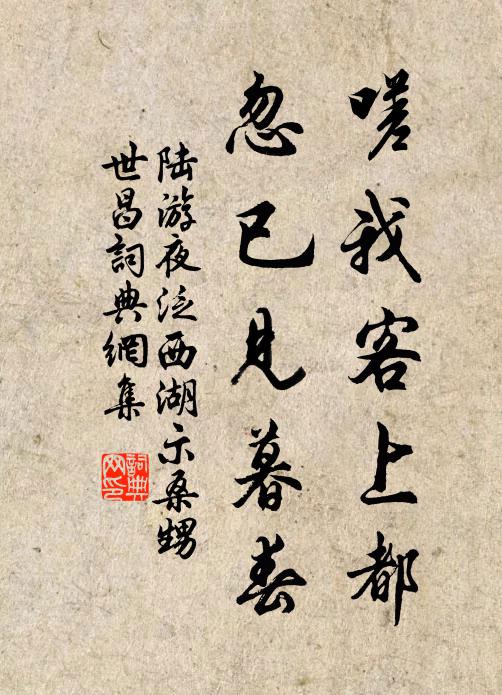 嗟我客上都
忽已見暮春
陆游夜泛西湖示桑甥
世昌詞典網集
詞典網印